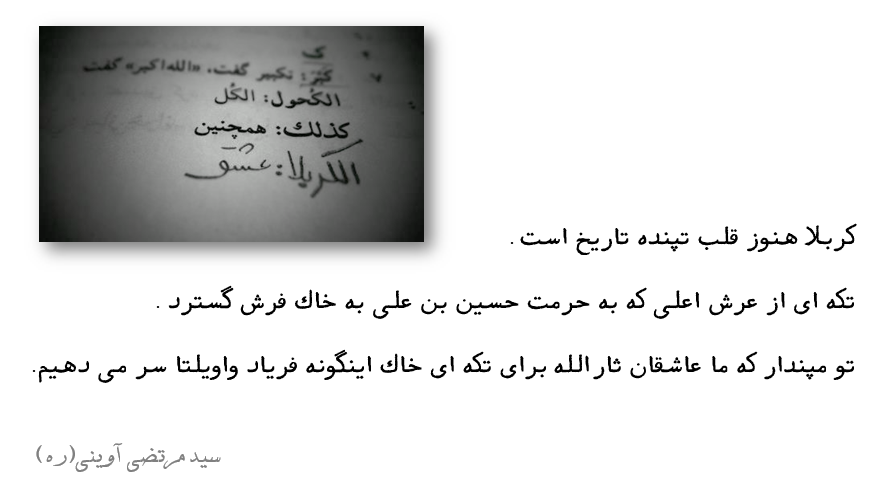 ک
کَبَّرَ: تکبیر گفت، «الله‌اکبر» گفت
الکُحول: الکُل
کذلك: همچنین
الکربلا: عشق
کربلا هنوز قلب تپنده تاریخ است .
تکه ای از عرش اعلی که به حرمت حسین بن علی به خاك فرش گسترد .
تو مپندار که ما عاشقان ثار الله برای تکه ای خاك اینگونه فریاد واویلتا سر می دهیم.
سید مرتضی آوینی(ره)